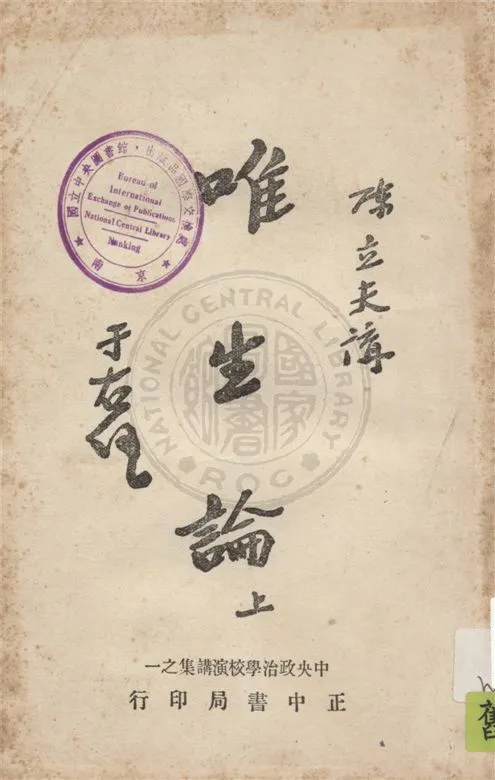 陳立夫講
唯生論
上
于右任
國立中央圖書館・出版品國際交換處
Bureau of
International
Exchange of Publications
National Central Library
Nanking
南京
NATIONAL CENTRAL LIBRARY
ROC
國家圖書館
中央政治學校演講集之一
正中書局印行
舊